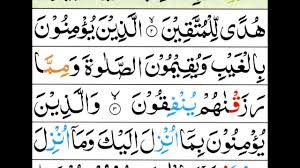 هُدًى لِّلْمُتَّقِيْنَ ۙ‏ ﴿۲﴾ الَّذِيْنَ يُؤْمِنُوْنَ
بِالْغَيْبِ وَيُقِيْمُوْنَ الصَّلٰوةَ وَمِمَّا
رَزَقْنٰهُمْ يُنْفِقُوْنَ ۙ‏ ﴿۳﴾ وَالَّذِيْنَ
يُؤْمِنُوْنَ بِمَاۤ اُنْزِلَ اِلَيْكَ وَمَاۤ اُنْزِلَ